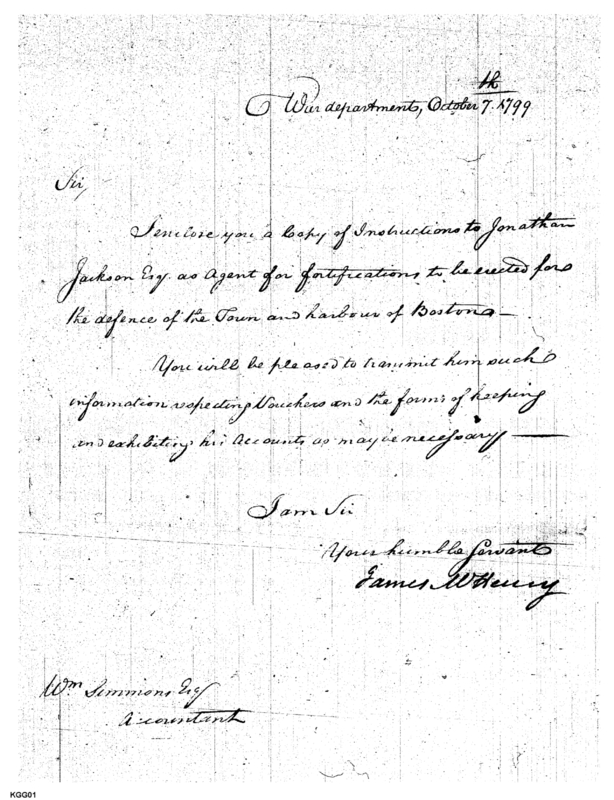 War department, October 7.th 1799
Sir,
I enclose you a Copy of Instructions to Jonathan
Jackson Esq. as Agent for fortifications to be erected for
the defence of the Town and harbour of Boston—
You will be pleased to transmit him such
information respecting Vouchers and the forms of keeping
and exhibiting his Accounts as may be necessary—
I am Sir
Your humble Servant
James McHenry
Wm Simmons Esq
Accountant
KGG01